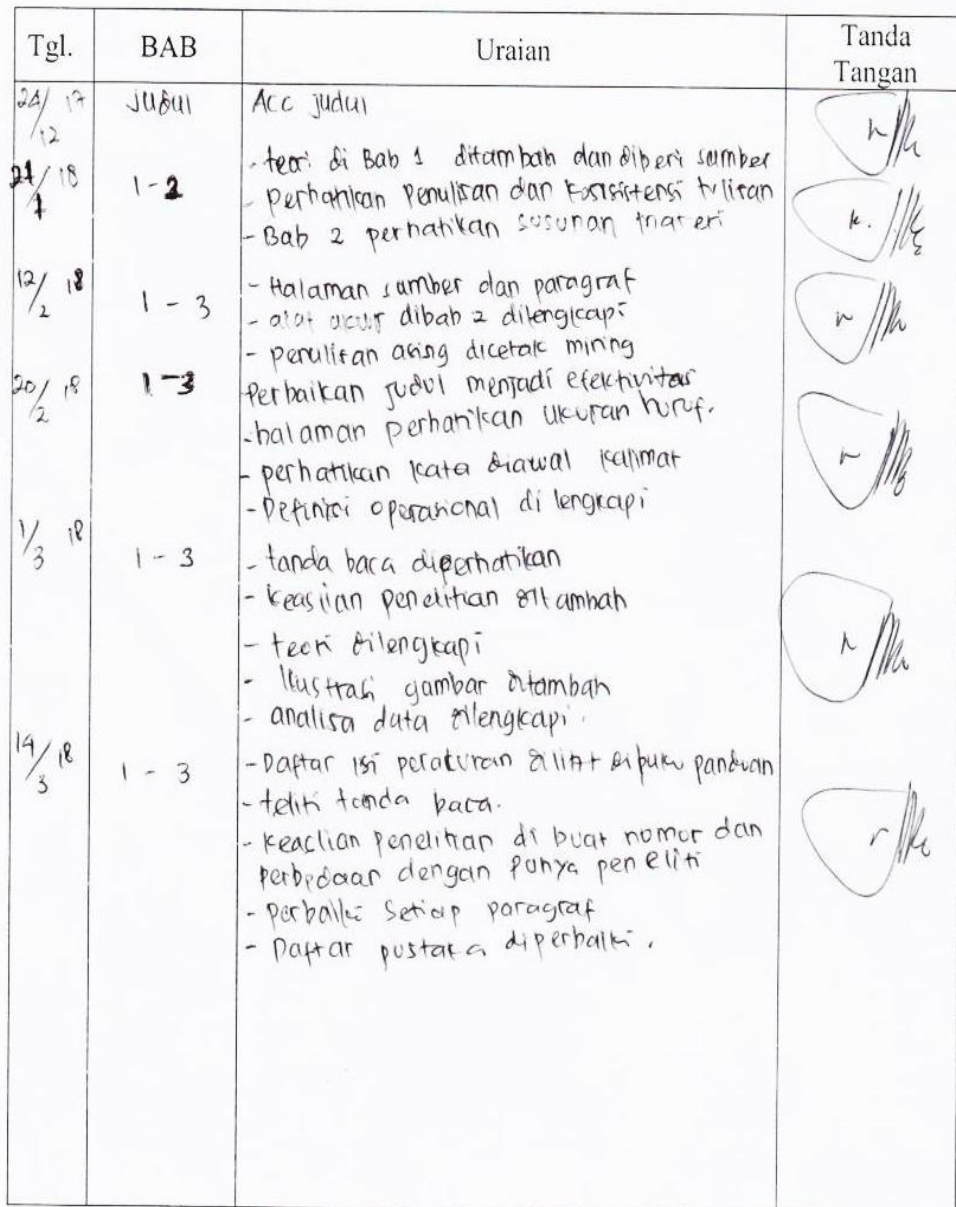 Tgl. BAB Uraian Tanda Tangan
24/12 17 Judul Acc judul
21/1 18 1-2 - teori di Bab 1 ditambah dan diberi sumber
- Perhatikan Penulisan dan konsistensi tulisan
- Bab 2 perhatikan susunan materi
12/2 18 1 - 3 - Halaman sumber dan paragraf
- alat ukur dibab 2 dilengkapi
- penulisan asing dicetak miring
20/2 18 1-3 Perbaikan judul menjadi efektivitas
- halaman perhatikan ukuran huruf.
- perhatikan kata diawal kalimat
- Definisi operasional di lengkapi
1/3 18 1 - 3 - tanda baca diperhatikan
- keaslian penelitian ditambah
- teori dilengkapi
- Ilustrasi gambar ditambah
- analisa data dilengkapi.
14/3 18 1 - 3 - Daftar isi peraturan dilihat dibuku panduan
- teliti tanda baca.
- keaslian penelitian di buat nomor dan
perbedaan dengan punya peneliti
- perbaiki setiap paragraf
- Daftar pustaka diperbaiki.